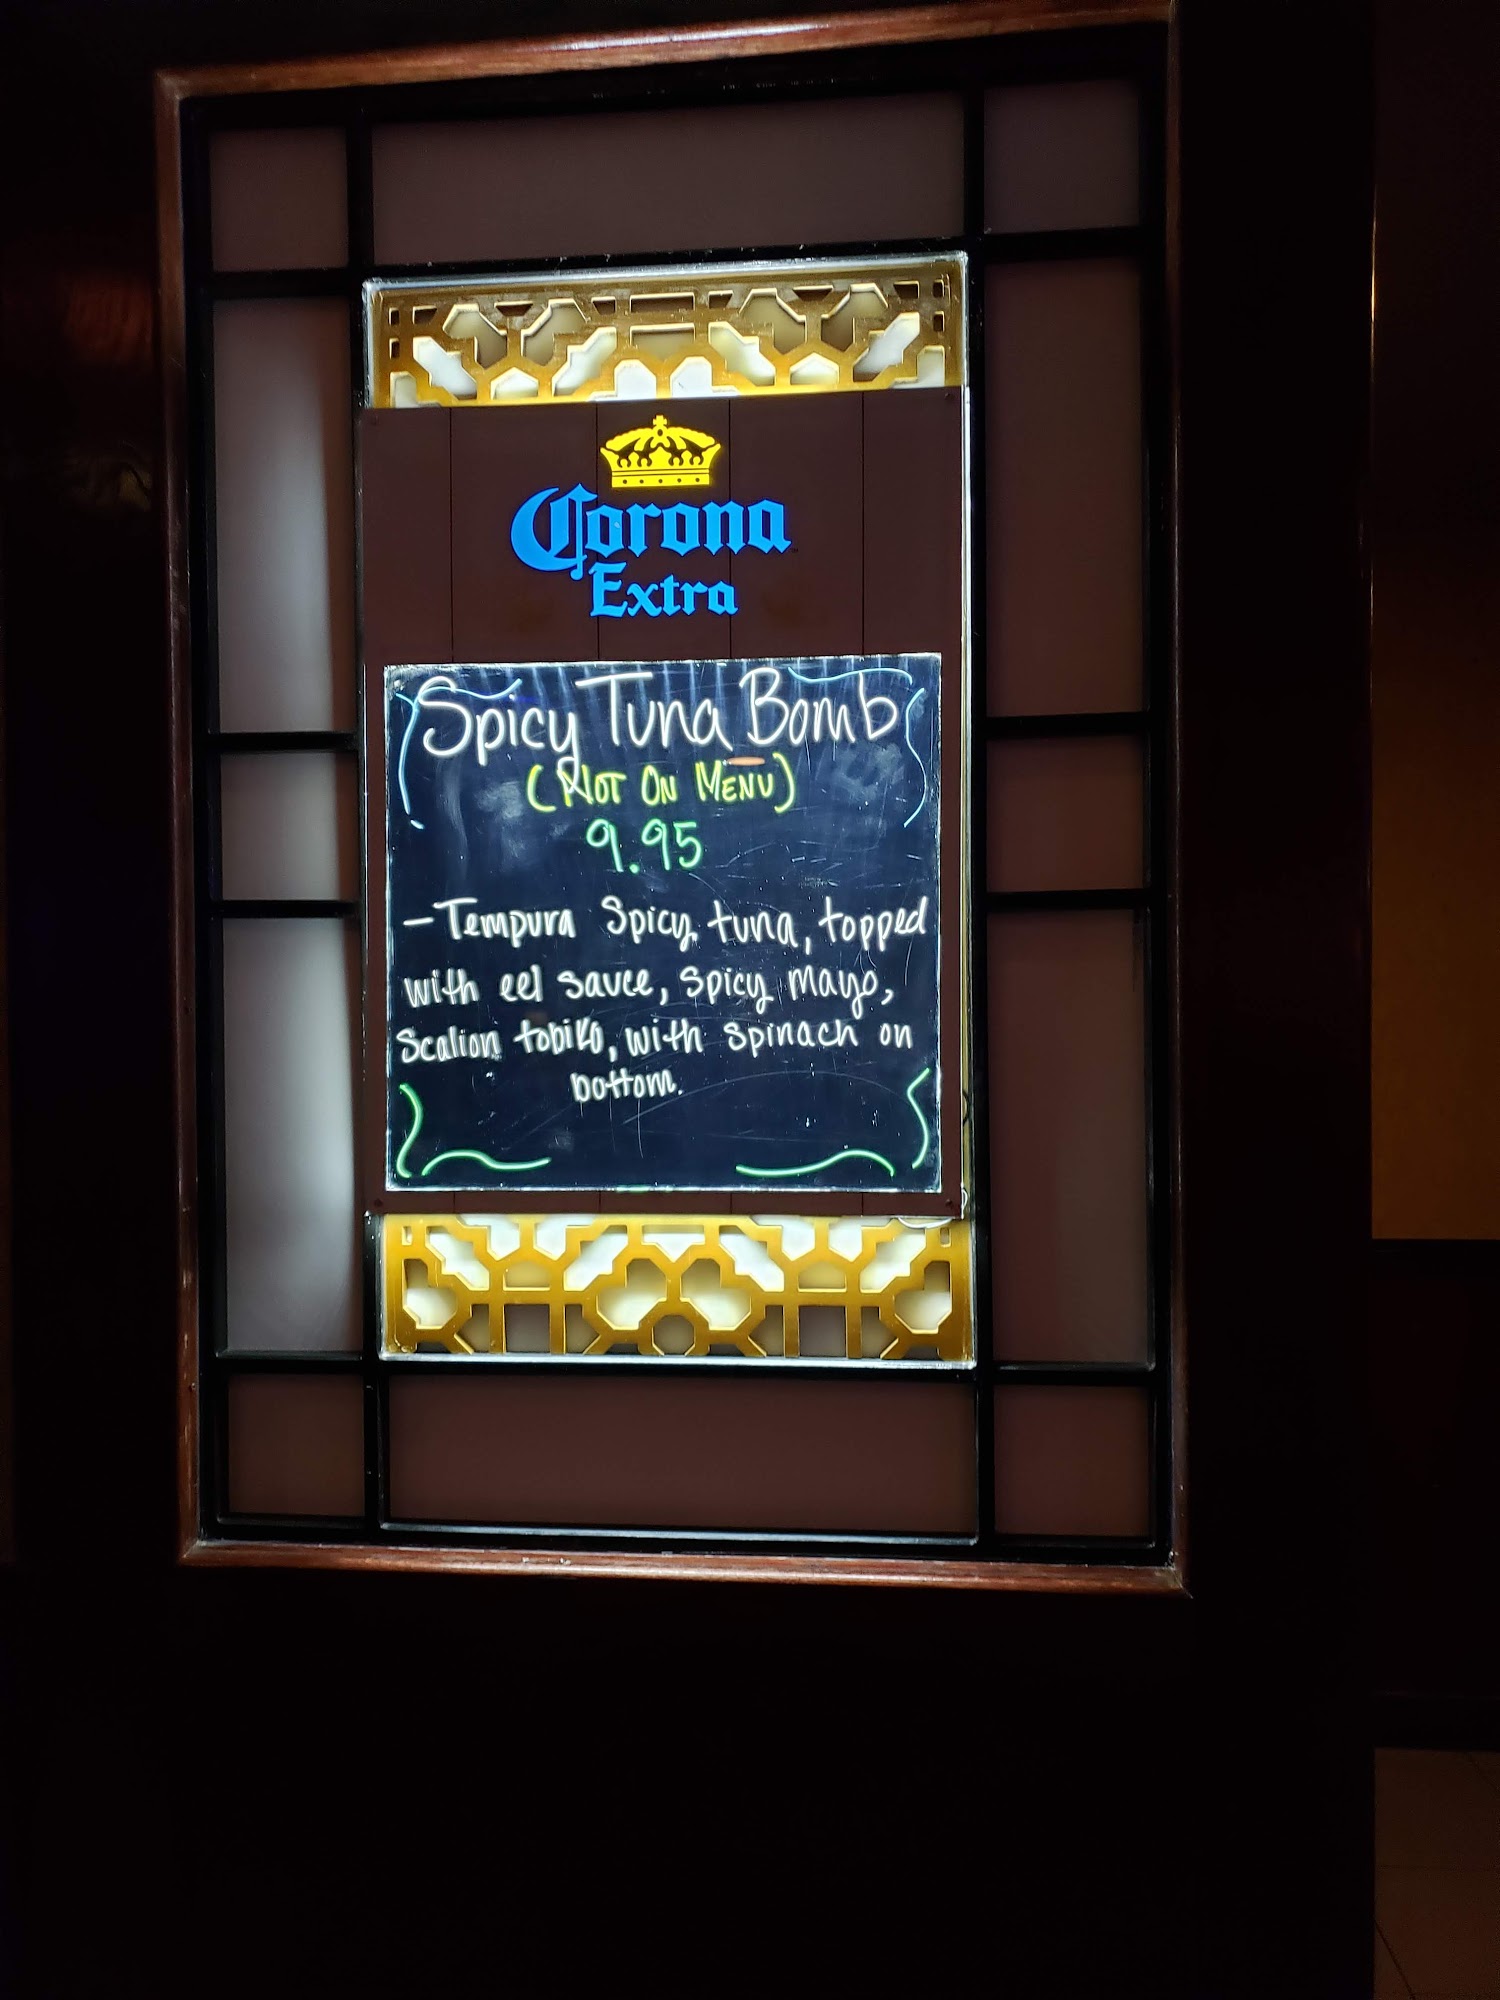 Corona
Extra
Spicy Tuna Bomb
(NOT ON MENU)
9.95
-Tempura Spicy tuna, topped
with eel sauce, spicy mayo,
Scalion tobiko, with spinach on
bottom.